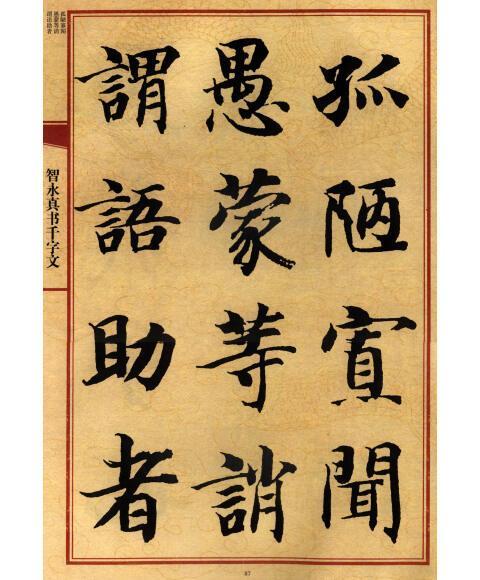 孤陋寡聞
愚蒙等誚
謂語助者
智永真书千字文
孤陋寡闻
愚蒙等诮
谓语助者
87